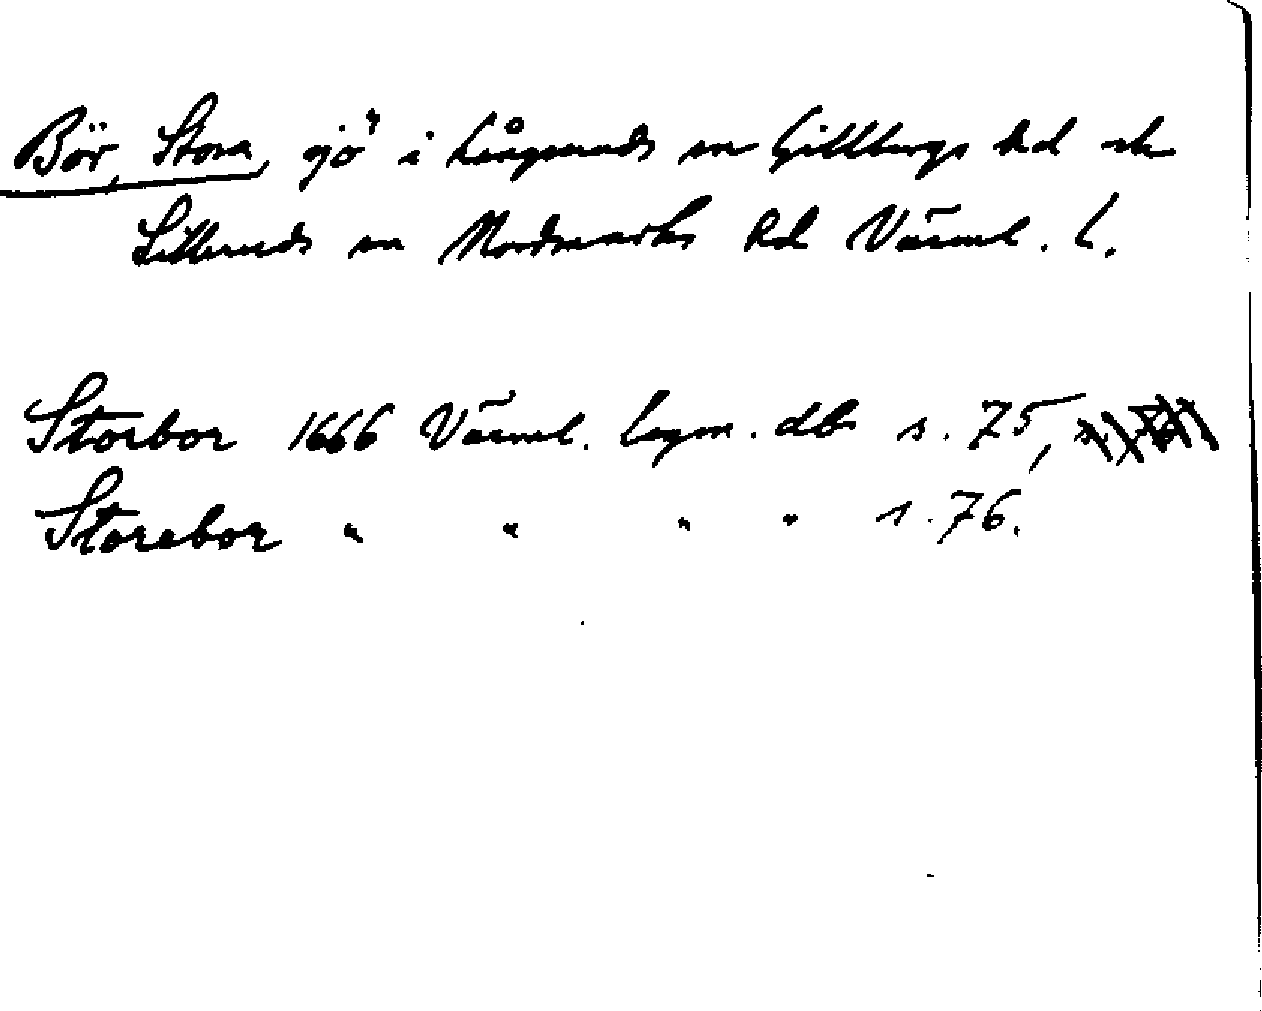 Bör, Stora, sjö i Långseruds sn Gillbergs hd och
Silleruds sn Nordmarks hd Värml. l.
Storbor 1666 Värml. lagm. db s. 75,
Storebor " " " " s. 76.